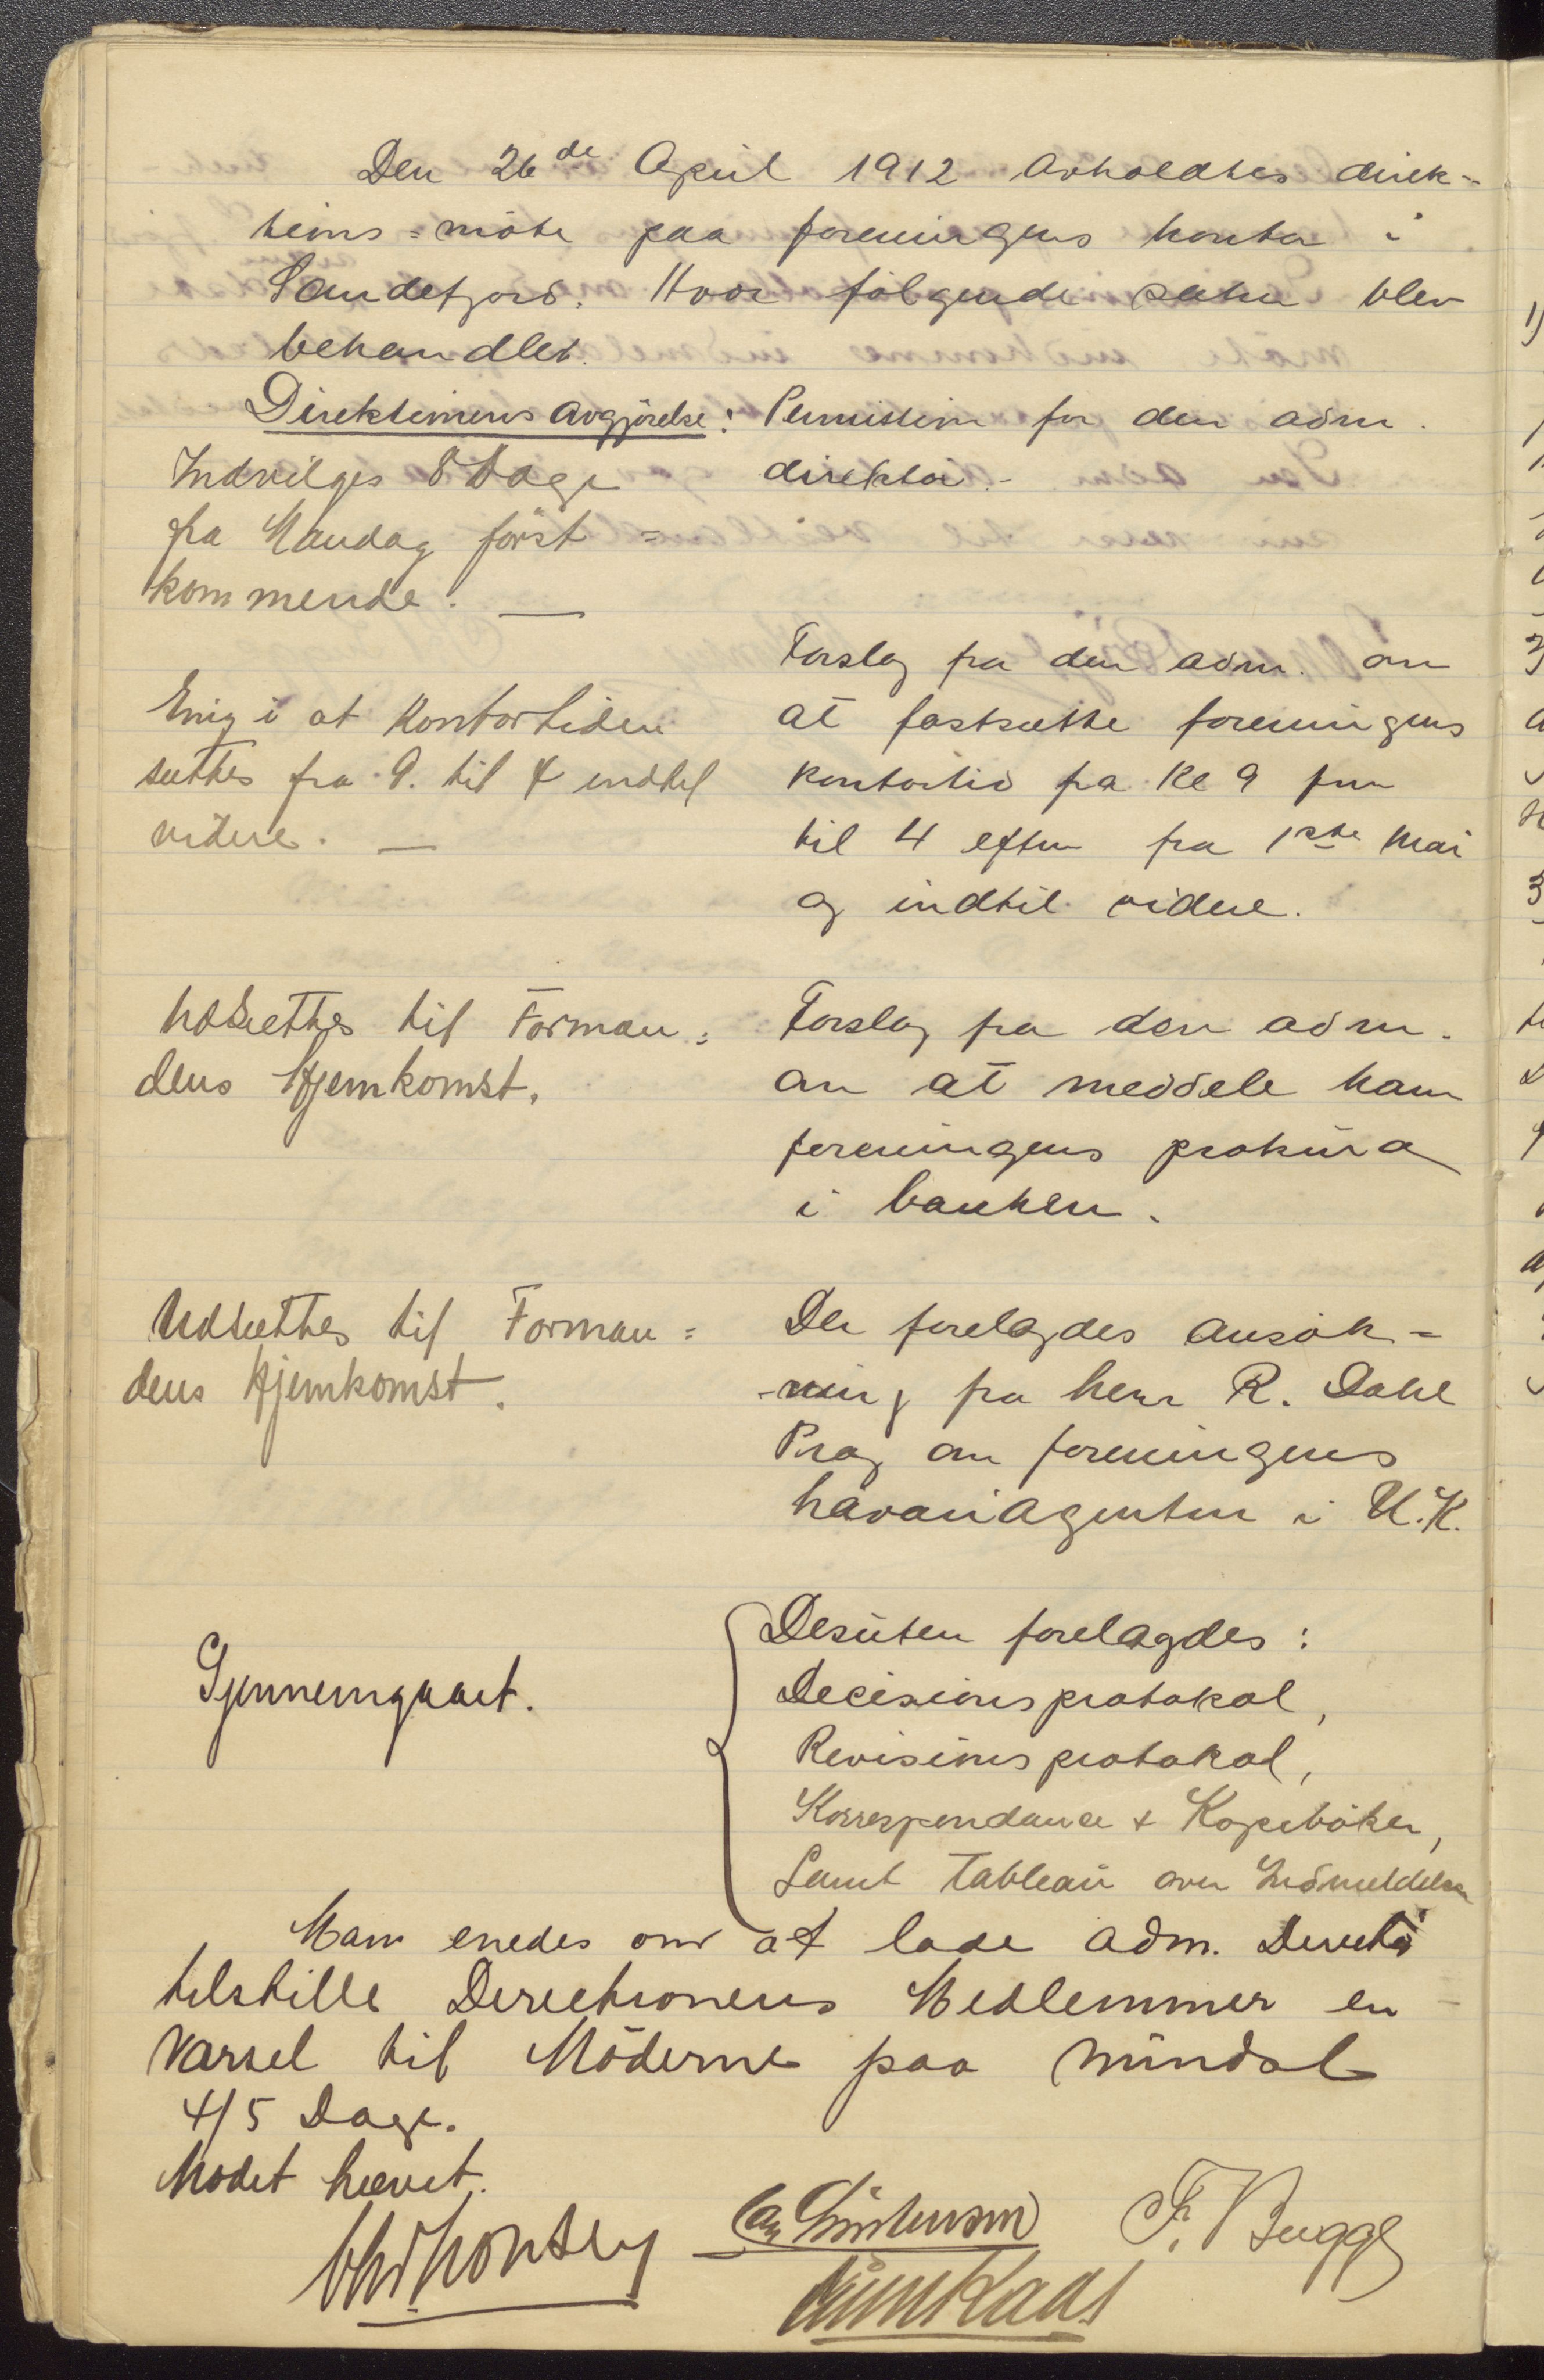 Den 26de April 1912 avholdtes direk-
tions=möte paa foreningens kontor i
Sandefjord. Hvor følgende saker blev
behandlet.
Direktionens avgjörelse:
Indvilges 8 Dage
fra Mandag först=
kommende. —
Permission for den adm.
direktör.-
Enig i at Kontortiden
sættes fra 9. til 4 indtil
videre. —
Forslag fra den adm. om
at fastsætte foreningens
kontortid fra Kl 9 fm
til 4 efterm fra 1ste Mai
og indtil videre.
Udsættes til Forman=
dens Hjemkomst.
Forslag fra den adm.
om at meddele ham
foreningens prokura
i banken.
Udsættes til Forman=
dens Hjemkomst.
Der forelagdes ansök=
-ning fra herr R. Dahl
Prag om foreningens
havariagentur i U.K.
Gjennemgaaet.
Desuten forelagdes:
Decisionsprotokol,
Revisionsprotokol,
Korrespondance & Kopibøker,
Samt Tableau over Indmeldelser
Man enedes om at lade adm. Direktör
tilstille Directionens Medlemmer en
Varsel til Möderne paa mindst
4/5 Dage.
Mödet hævet.
Chr Christensen
F. Bugge